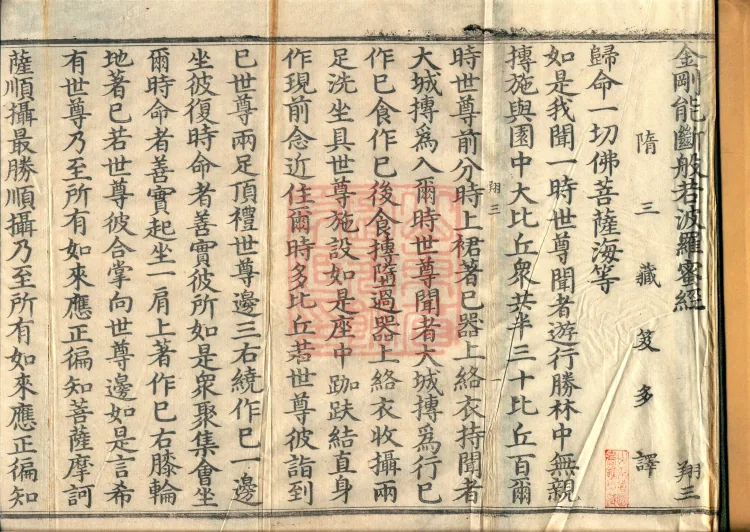 金剛能斷般若波羅蜜經 翔三
隋三藏笈多譯
歸命一切佛菩薩海等
如是我聞一時世尊聞者遊行勝林中無親
摶施與園中大比丘衆共半三十比丘百爾
翔三 一
時世尊前分時上裙著已器上絡衣持聞者
大城摶爲入爾時世尊聞者大城摶爲行已
作已食作已後食摶墮過器上絡衣收攝兩
足洗坐具世尊施設如是座中跏趺結直身
作現前念近住爾時多比丘若世尊彼詣到
已世尊兩足頂禮世尊邊三右繞作已一邊
坐彼復時命者善實彼所如是衆聚集會坐
爾時命者善實起坐一肩上著作已右膝輪
地著已若世尊彼合掌向世尊邊如是言希
有世尊乃至所有如來應正徧知菩薩摩訶
薩順攝最勝順攝乃至所有如來應正徧知